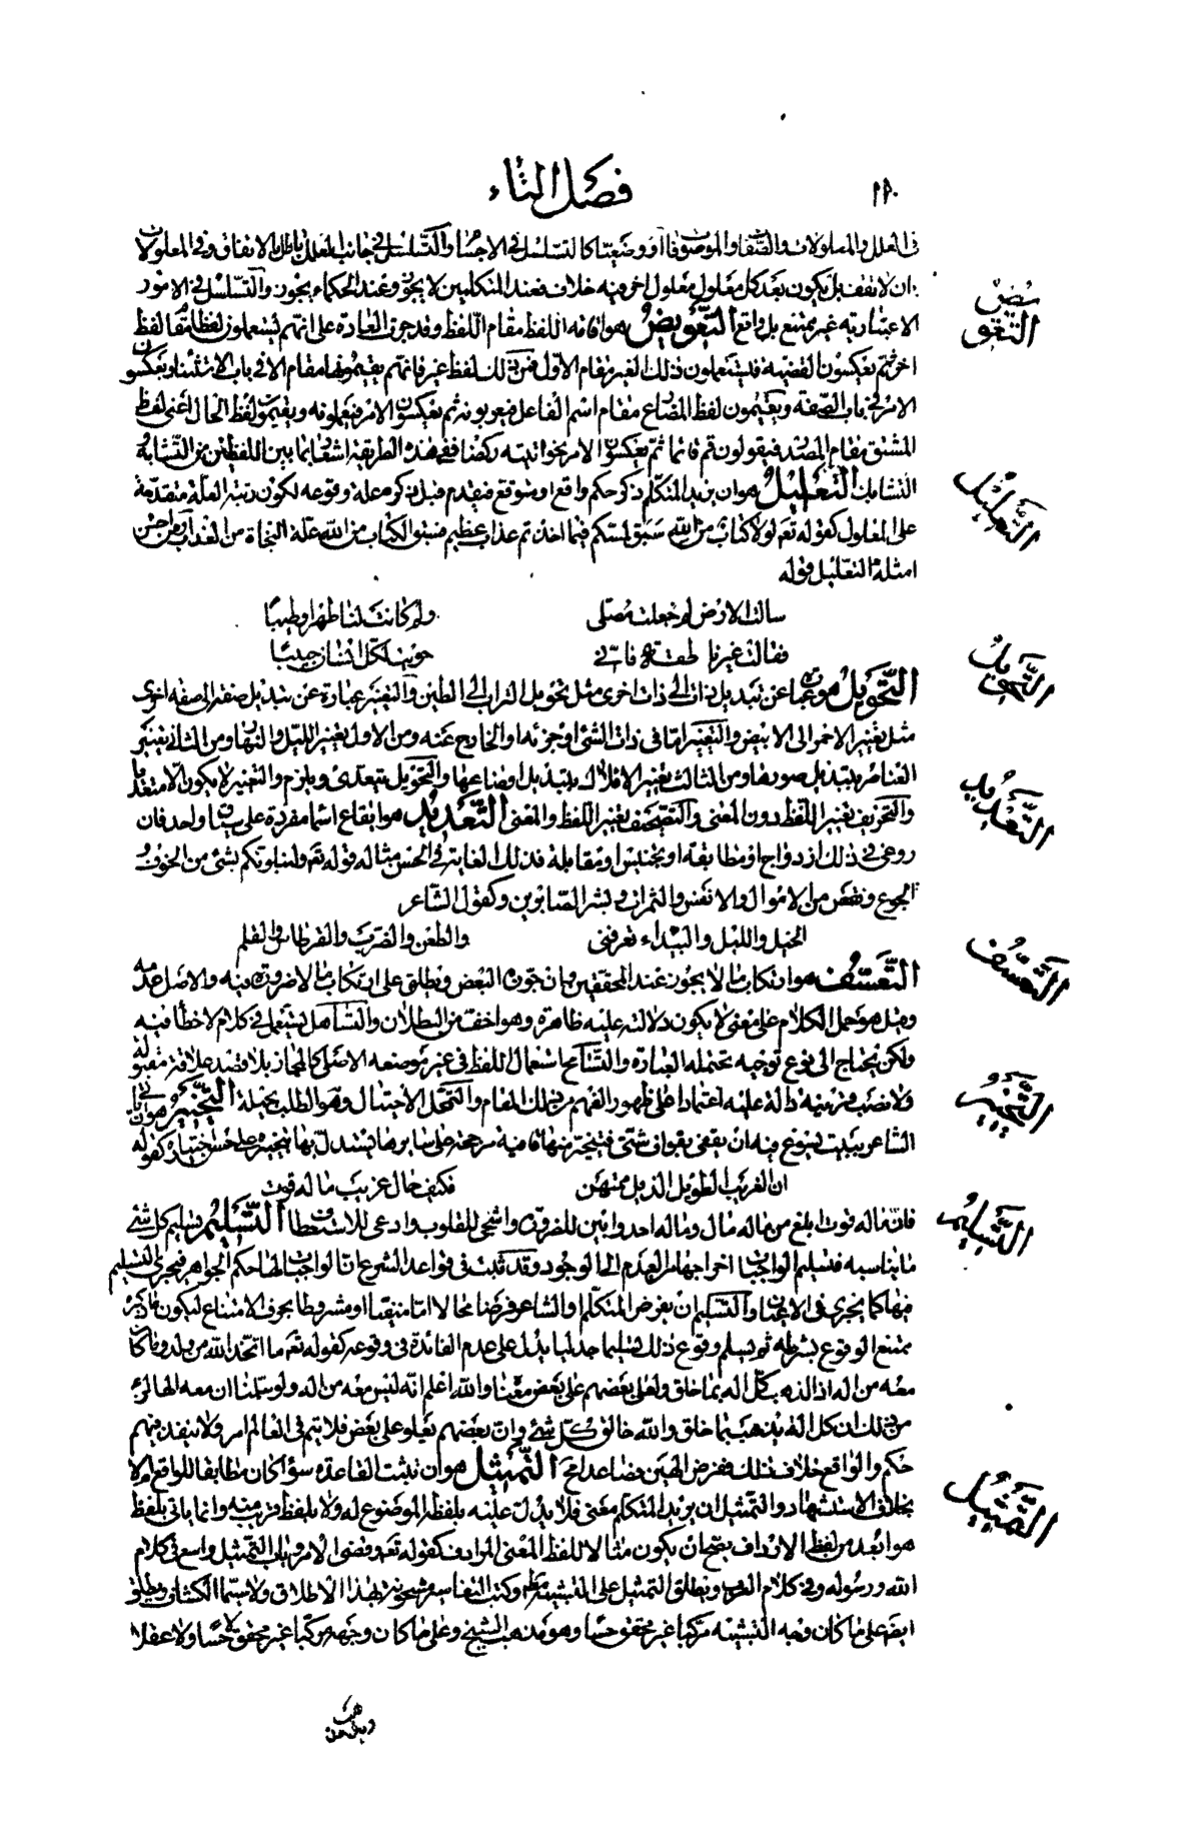 ١١٠
فصل التاء
في العلل والمعلولات والصفات والموصوفات أو وضعيا كالتسلسل في الاجسام والتسلسل في جانب العلل باطل بالاتفاق وفي المعلولات
بان لا تقف بل يكون بعد كل معلول معلول اخر فيه خلاف فعند المتكلمين لا يجوز وعند الحكماء يجوز والتسلسل في الامور
الاعتبارية غير ممتنع بل واقع التعويض هو اقامة اللفظ مقام اللفظ وقد جرت العادة على انهم يستعملون لفظا مقام لفظ
اخر ثم يعكسون القضية فيستعملون ذلك لغير مقام الاول فمن ذلك لفظ غير فانهم يقيمونها مقام الا في باب الاستثناء ويعكسون
الامر في باب الصفة ويقيمون لفظ المضارع مقام اسم الفاعل فيعربونه ثم يعكسون الامر فيعملونه ويقيمون لفظ الحال اعني لفظ
المشتق مقام المصدر فيقولون قم قائما ثم يعكسون الامر نحو اتيته ركضا ففي هذه الطريقة اشعار بما بين اللفظين من التشابه
التشابك التعليل هو ان يريد المتكلم ذكر حكم واقع او متوقع فيقدم قبل ذكره علة وقوعه لكون رتبة العلة متقدمة
على المعلول كقوله تعم لولا كتاب من الله سبق لمسكم فيما اخذتم عذاب عظيم فسبق الكتاب من الله علة النجاة من العذاب ومن احسن
امثلة التعليل قوله
سالت الارض لم جعلت مصلى ولم كانت لنا طهرا وطيبا
فقالت غير ناطقة فاني حويت لكل انسان حبيبا
التحويل هو عبارة عن تبديل ذات الى ذات اخرى مثل تحويل التراب الى الطين والتغيير عبارة عن تبديل صفة الى صفة اخرى
مثل تغيير الاحمر الى الابيض والتغيير اما في ذات الشئ او جزئه او الخارج عنه ومن الاول تغيير الليل والنهار ومن الثاني تغيير
العناصر بتبديل صورها ومن الثالث تغيير الافلاك بتبديل اوضاعها والتحويل يتعدى ويلزم والتغيير لا يكون الا متعديا
والتحريف تغيير اللفظ دون المعنى والتصحيف تغيير اللفظ والمعنى التعديد هو ايقاع اسماء مفردة على سياق واحد فان
روعي في ذلك ازدواج او مطابقة او تجنيس او مقابلة فذلك الغاية في الحسن مثاله قوله تعم ولنبلونكم بشئ من الخوف و
الجوع ونقص من الاموال والانفس والثمرات وبشر الصابرين وكقول الشاعر
الخيل والليل والبيداء تعرفني والطعن والضرب والقرطاس والقلم
التعسف هو ارتكاب ما لا يجوز عند المحققين وان جوزه البعض ويطلق على ارتكاب ما لا ضرورة فيه والاصل عدمه
وقيل هو حمل الكلام على معنى لا يكون دلالته عليه ظاهرة وهو اخف من البطلان والتساهل يستعمل في كلام لا خطأ فيه
ولكن يحتاج الى نوع توجيه تحتمله العبارة والتسامح استعمال اللفظ في غير موضعه الاصلي كالمجاز بلا قصد علاقة مقبولة
ولا نصب قرينة دالة عليه اعتمادا على ظهور الفهم من ذلك المقام والتمحل الاحتيال وهو الطلب بحيلة التخيير هو ان ياتي
الشاعر ببيت يسوغ فيه ان يقفى بقواف شتى فيتخير منها قافية مرجحة على سايرها يستدل بها بتخييره على حسن اختياره كقوله
ان الغريب الطويل الذيل ممتهن فكيف حال غريب ما له قوت
فان ما له قوت ابلغ من ما له مال وما له احد وابين للضرورة واشجى للقلوب وادعى للاستعطاف التسليم تسليم كل شئ
ما يناسبه فتسليم الواجبات اخراجها من العدم الى الوجود وقد ثبت في قواعد الشرع ان الواجبات لها حكم الجواهر فيجري التسليم
فيها كما يجري في الاعيان والتسليم ان يفرض المتكلم او الشاعر فرضا محالا اما منفيا او مشروطا بحرف الامتناع ليكون ما ذكره
ممتنع الوقوع بشرطه ثم يسلم وقوع ذلك تسليما جدليا يدل على عدم الفائدة في وقوعه كقوله تعم ما اتخذ الله من ولد وما كان
معه من اله اذا لذهب كل اله بما خلق ولعلى بعضهم على بعض معناه والله اعلم انه ليس معه من اله ولو سلمنا ان معه الها لزم
من ذلك ان كل اله يذهب بما خلق والله خالق كل شئ وان بعضهم يعلو على بعض فلا يتم في العالم امر ولا ينفذ فيهم
حكم والواقع خلاف ذلك ففرض الهين فصاعدا مح التمثيل هو ان يثبت القاعدة سواء كان مطابقا للواقع ام لا
بخلاف الاستشهاد والتمثيل ان يريد المتكلم معنى فلا يدل عليه بلفظه الموضوع له ولا بلفظ قريب منه وانما ياتي بلفظ
هو ابعد من لفظ الارداف يصح ان يكون مثالا للفظ المعنى المراد كقوله تعم وقضي الامر وباب التمثيل واسع في كلام
الله ورسوله وفي كلام العرب ويطلق التمثيل على التشبيه مط وكتب التفاسير مشحونة بهذا الاطلاق ولا سيما الكشاف ويطلق
ايضا على ما كان وجه التشبيه مركبا غير محقق حسا وهو مذهب الشيخ وعلى ما كان وجهه مركبا غير محقق لا حسا ولا عقلا
التعويض
التعليل
التحويل
التعديد
التعسف
التخيير
التسليم
التمثيل